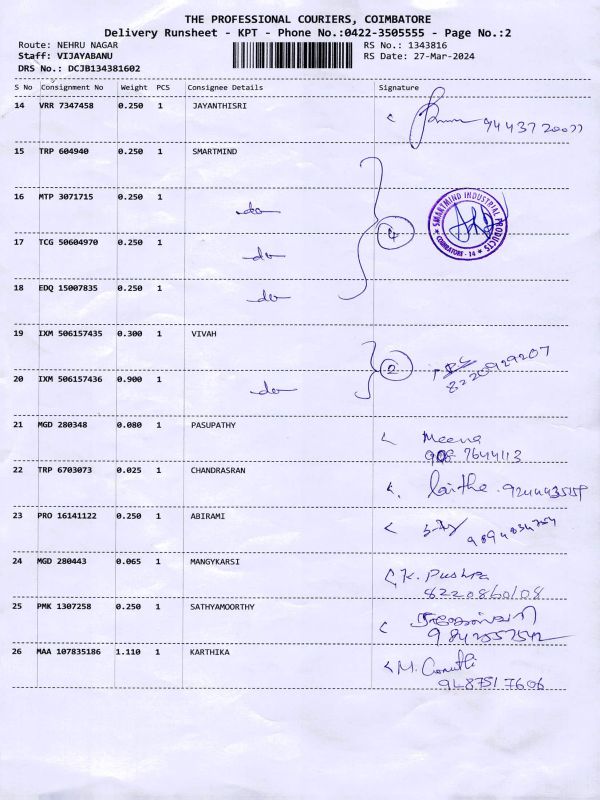 THE PROFESSIONAL COURIERS, COIMBATORE
Delivery Runsheet - KPT - Phone No.:0422-3505555 - Page No.:2
Route: NEHRU NAGAR
RS No.: 1343816
Staff: VIJAYABANU
RS Date: 27-Mar-2024
DRS No.: DCJB134381602
S No Consignment No Weight PCS Consignee Details Signature
14 VRR 7347458 0.250 1 JAYANTHISRI
15 TRP 604940 0.250 1 SMARTMIND
16 MTP 3071715 0.250 1 -do-
SMARTMIND INDUSTRIAL PRODUCTS
* COIMBATORE - 14 *
4
17 TCG 50604970 0.250 1 -do-
18 EDQ 15007835 0.250 1 -do-
19 IXM 506157435 0.300 1 VIVAH
2
8220929207
20 IXM 506157436 0.900 1 -do-
21 MGD 280348 0.080 1 PASUPATHY Meena
7644113
22 TRP 6703073 0.025 1 CHANDRASRAN
23 PRO 16141122 0.250 1 ABIRAMI
24 MGD 280443 0.065 1 MANGYKARSI K. Pushpa
8220860108
25 PMK 1307258 0.250 1 SATHYAMOORTHY
9842557542
26 MAA 107835186 1.110 1 KARTHIKA M.
9487517606